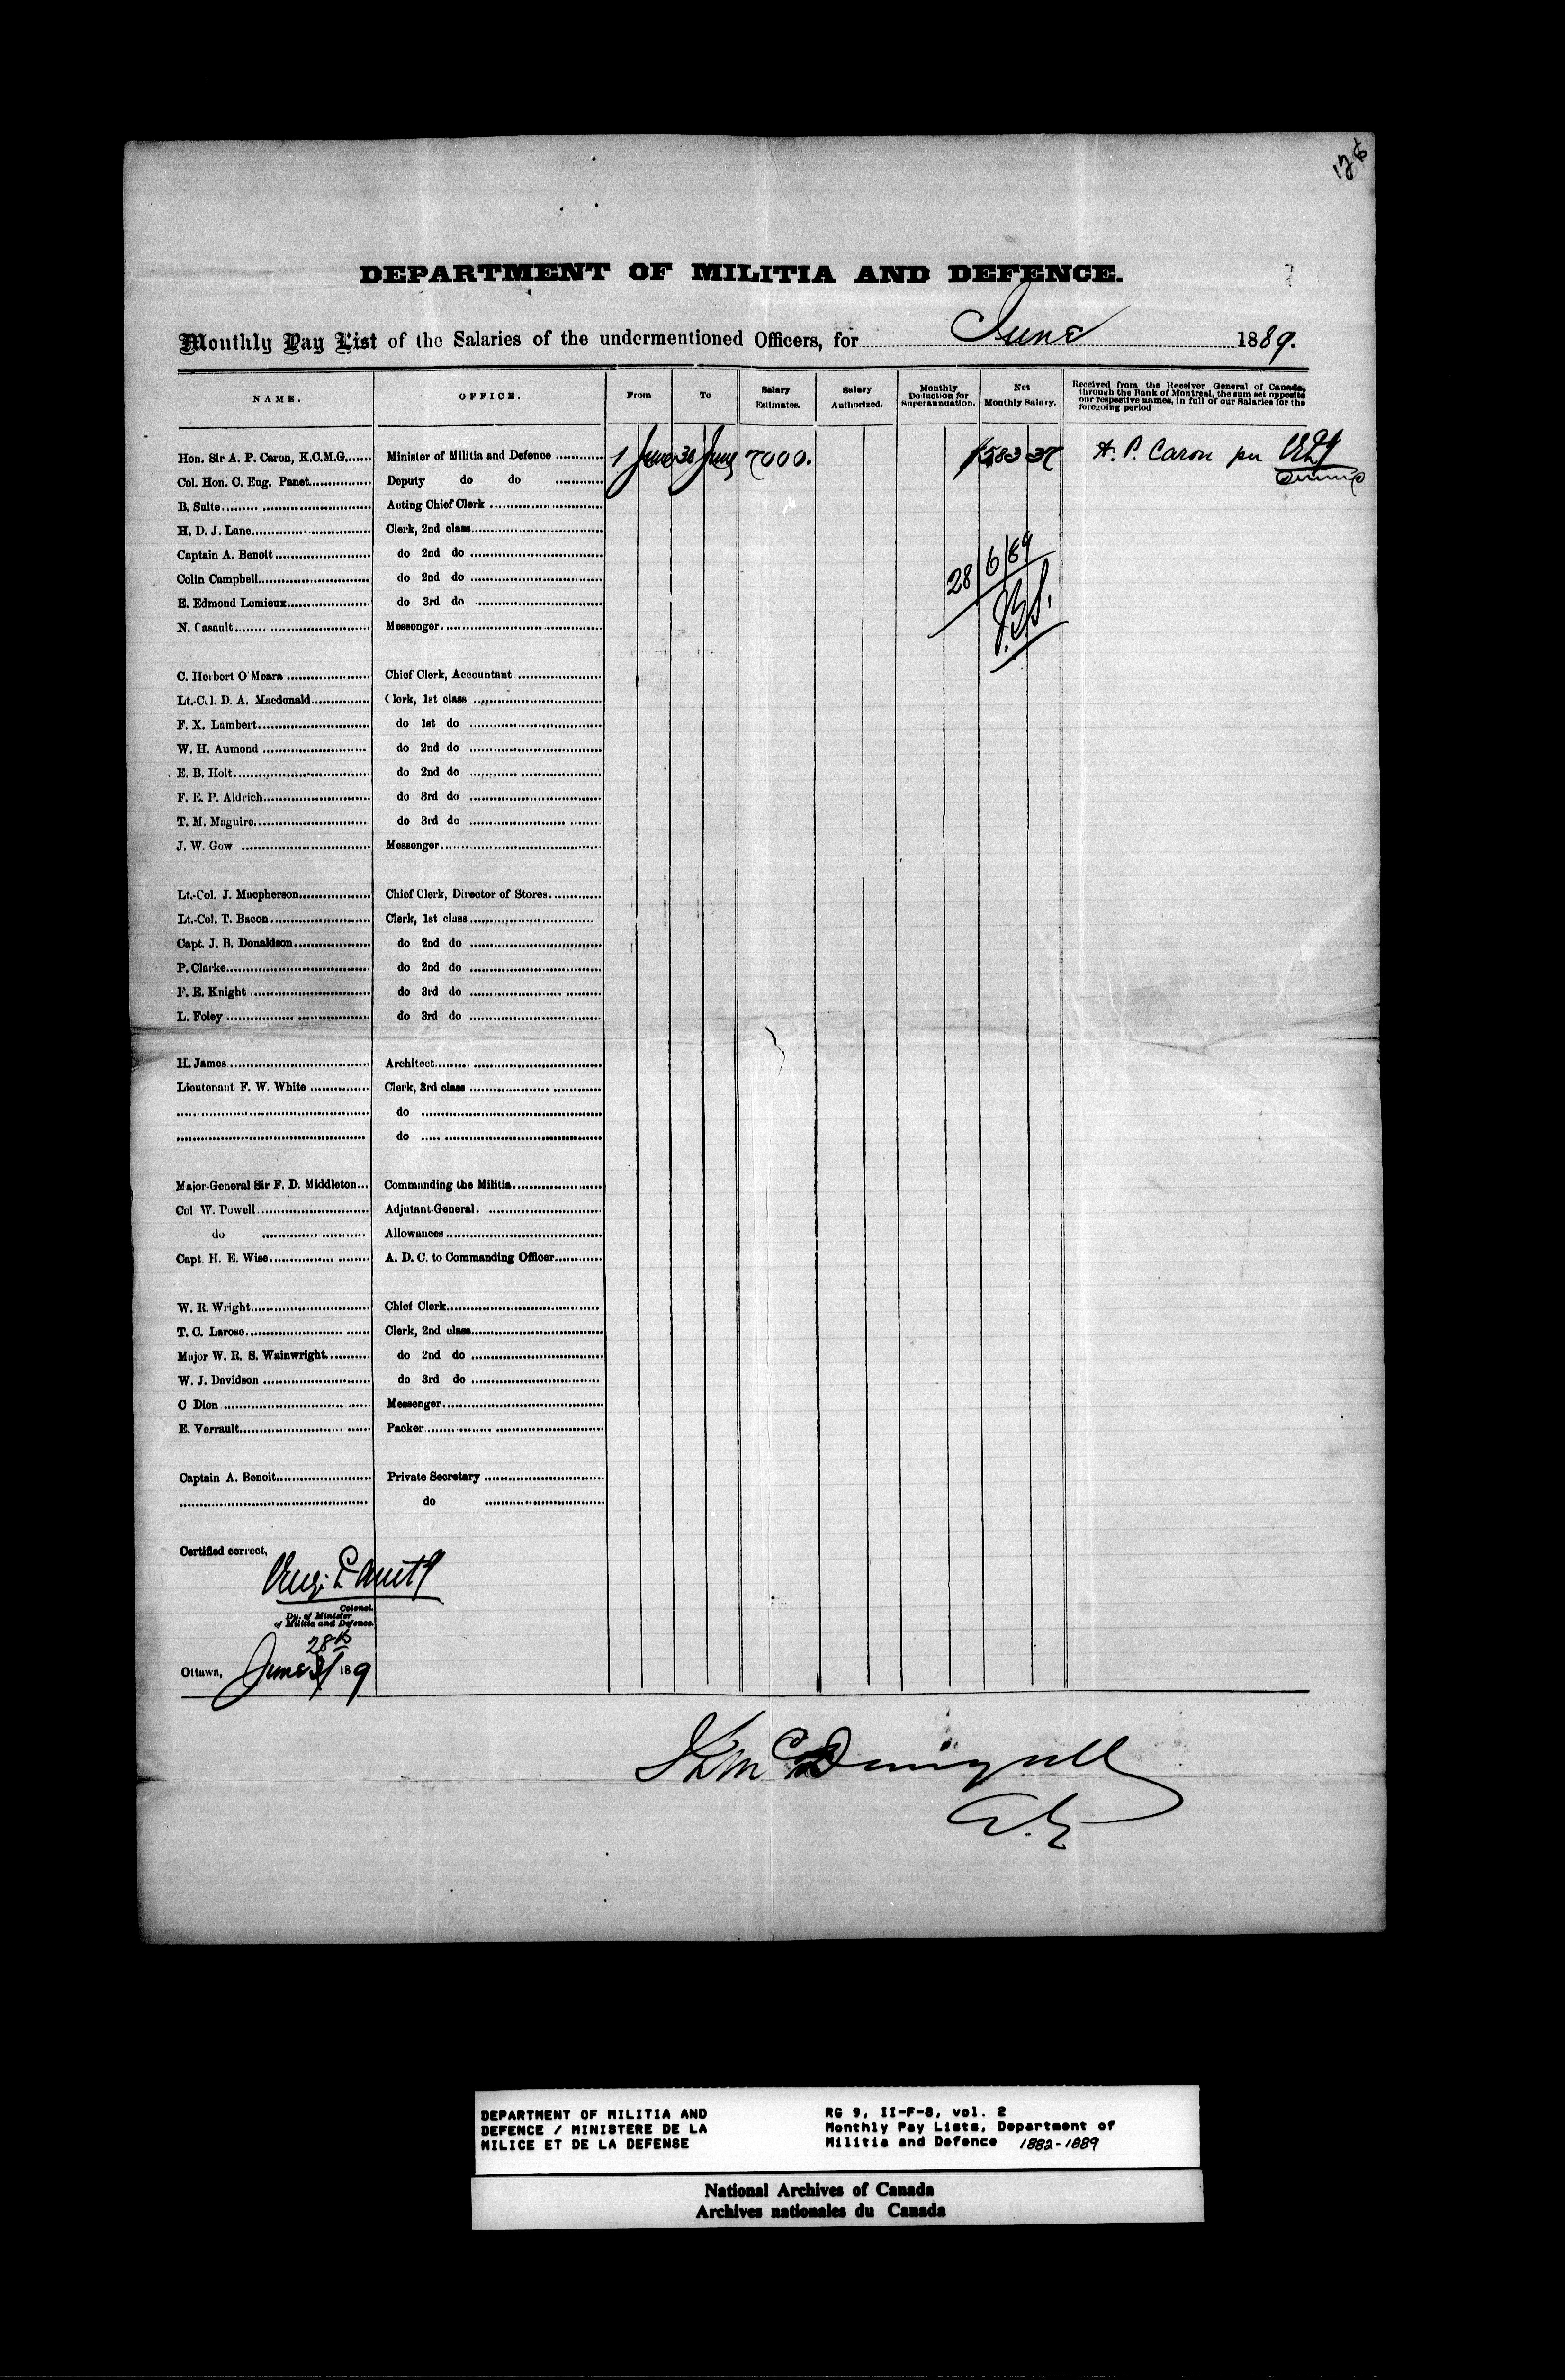 128
DEPARTMENT OF MILITIA AND DEFENCE.
Monthly Pay List of the Salaries of the undermentioned Officers, for June 1889.
NAME. OFFICE. From To Salary Estimates. Salary Authorized. Monthly Deduction for Superannuation. Net Monthly Salary. Received from the Receiver General of Canada, through the Bank of Montreal, the sum set opposite our respective names, in full of our Salaries for the foregoing period
Hon. Sir A. P. Caron, K.C.M.G. Minister of Militia and Defence 1 June 30 June 7000. 583 37 A. P. Caron per
Col. Hon. C. Eug. Panet Deputy do do
B. Sulte Acting Chief Clerk
H. D. J. Lane Clerk, 2nd class
Captain A. Benoit do 2nd do
28/6/89
Colin Campbell do 2nd do
E. Edmond Lemieux do 3rd do
N. Casault Messenger
C. Herbert O'Meara Chief Clerk, Accountant
Lt.-Col. D. A. Macdonald Clerk, 1st class
F. X. Lambert do 1st do
W. H. Aumond do 2nd do
E. B. Holt do 2nd do
F. E. P. Aldrich do 3rd do
T. M. Maguire do 3rd do
J. W. Gow Messenger
Lt.-Col. J. Macpherson Chief Clerk, Director of Stores
Lt.-Col. T. Bacon Clerk, 1st class
Capt. J. B. Donaldson do 2nd do
P. Clarke do 2nd do
F. E. Knight do 3rd do
L. Foley do 3rd do
H. James Architect
Lieutenant F. W. White Clerk, 3rd class
do
do
Major-General Sir F. D. Middleton Commanding the Militia
Col W. Powell Adjutant-General.
do Allowances
Capt. H. E. Wise A. D. C. to Commanding Officer
W. R. Wright Chief Clerk
T. C. Larose Clerk, 2nd class
Major W. R. S. Wainwright do 2nd do
W. J. Davidson do 3rd do
C Dion Messenger
E. Verrault Packer
Captain A. Benoit Private Secretary
do
Certified correct,
Colonel.
Dy. of Minister
of Militia and Defence.
28th
Ottawa, June 31 189
DEPARTMENT OF MILITIA AND
DEFENCE / MINISTERE DE LA
MILICE ET DE LA DEFENSE
RG 9, II-F-8, vol. 2
Monthly Pay Lists, Department of
Militia and Defence 1882-1889
National Archives of Canada
Archives nationales du Canada